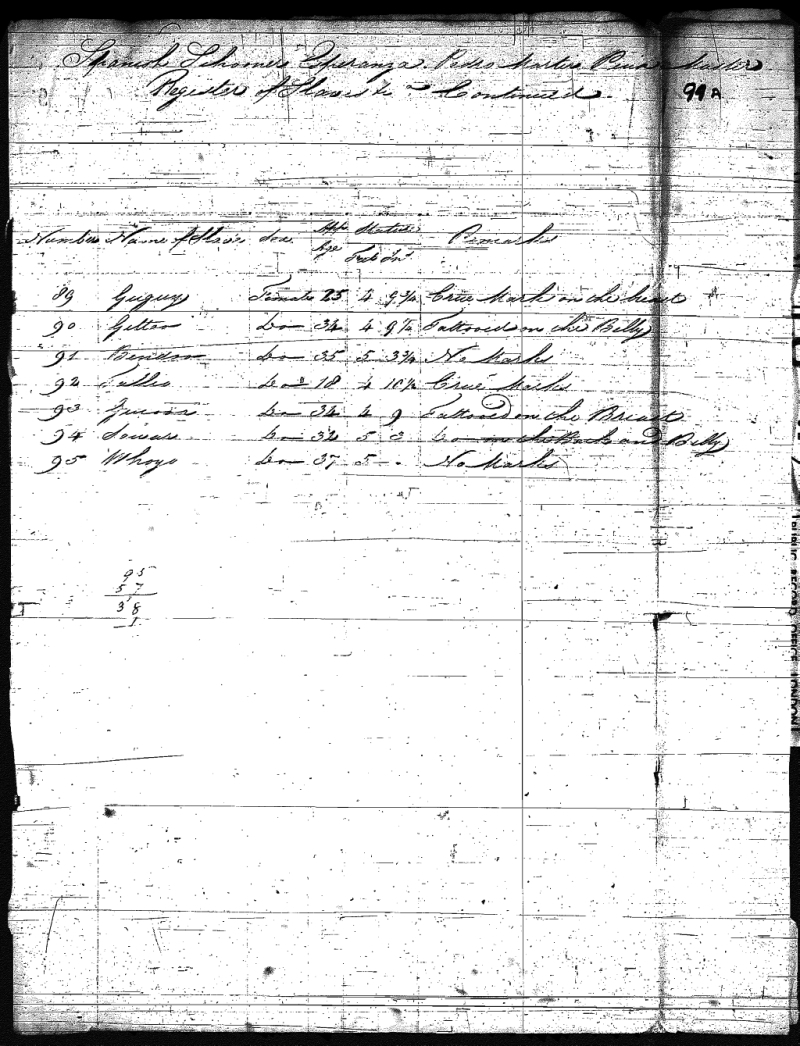 Spanish Schooner Esperanza Pedro Master
Register of Slaves &c Continued 99A
Number Name of Slaves Sex App Age Stature Feet In Remarks
89 Guguy Female 25 4 9¾ Crue Mark on the breast
90 Do 34 4 9 Tattooed on the Belly
91 Do 35 5 3¾ No Marks
92 Do 18 4 10¼ Crue Marks
93 Do 34 4 9 Tattooed on the Breast
94 Do 32 5 3 Do on the Back and Belly
95 Whoyo Do 37 5 - No Marks
95
57
38
1
PUBLIC RECORD OFFICE LONDON